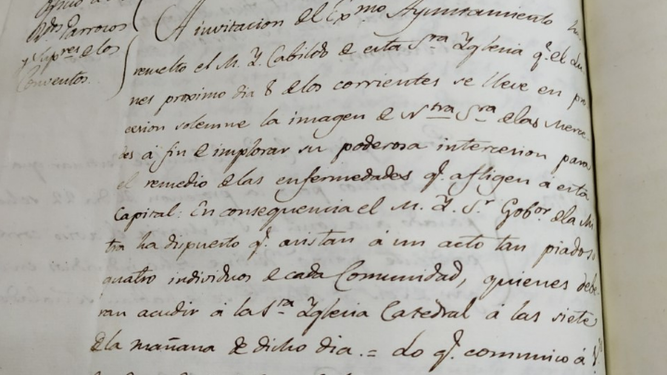 Curas Parrocos
y Sup.res de los
Conventos.
A invitacion del Ex.mo Ayuntamiento ha
resuelto el M. Y. Cabildo de esta S.ta Yglesia q.e el Lu-
nes proximo dia 8 de los corrientes se lleve en pro
cesion solemne la imagen de N.tra S.ra de las Merce
des á fin de implorar su poderosa intercesion para
el remedio de las enfermedades q.e afligen á esta
Capital. En consequencia el M. Y. S.r Gob.or de la Mi
tra ha dispuesto q.e asistan á un acto tan piadoso
quatro individuos de cada Comunidad, quienes debe
ran acudir á la S.ta Yglesia Catedral á las siete
de la mañana de dicho dia. = Lo q.e comunico á V